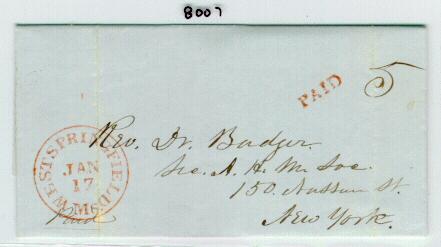 8007
PAID
5
WEST SPRINGFIELD
JAN
17
MS
Paid
Rev. Dr. Badger.
Sec. A. H. M. Soc.
150. Nassau St.
New York.